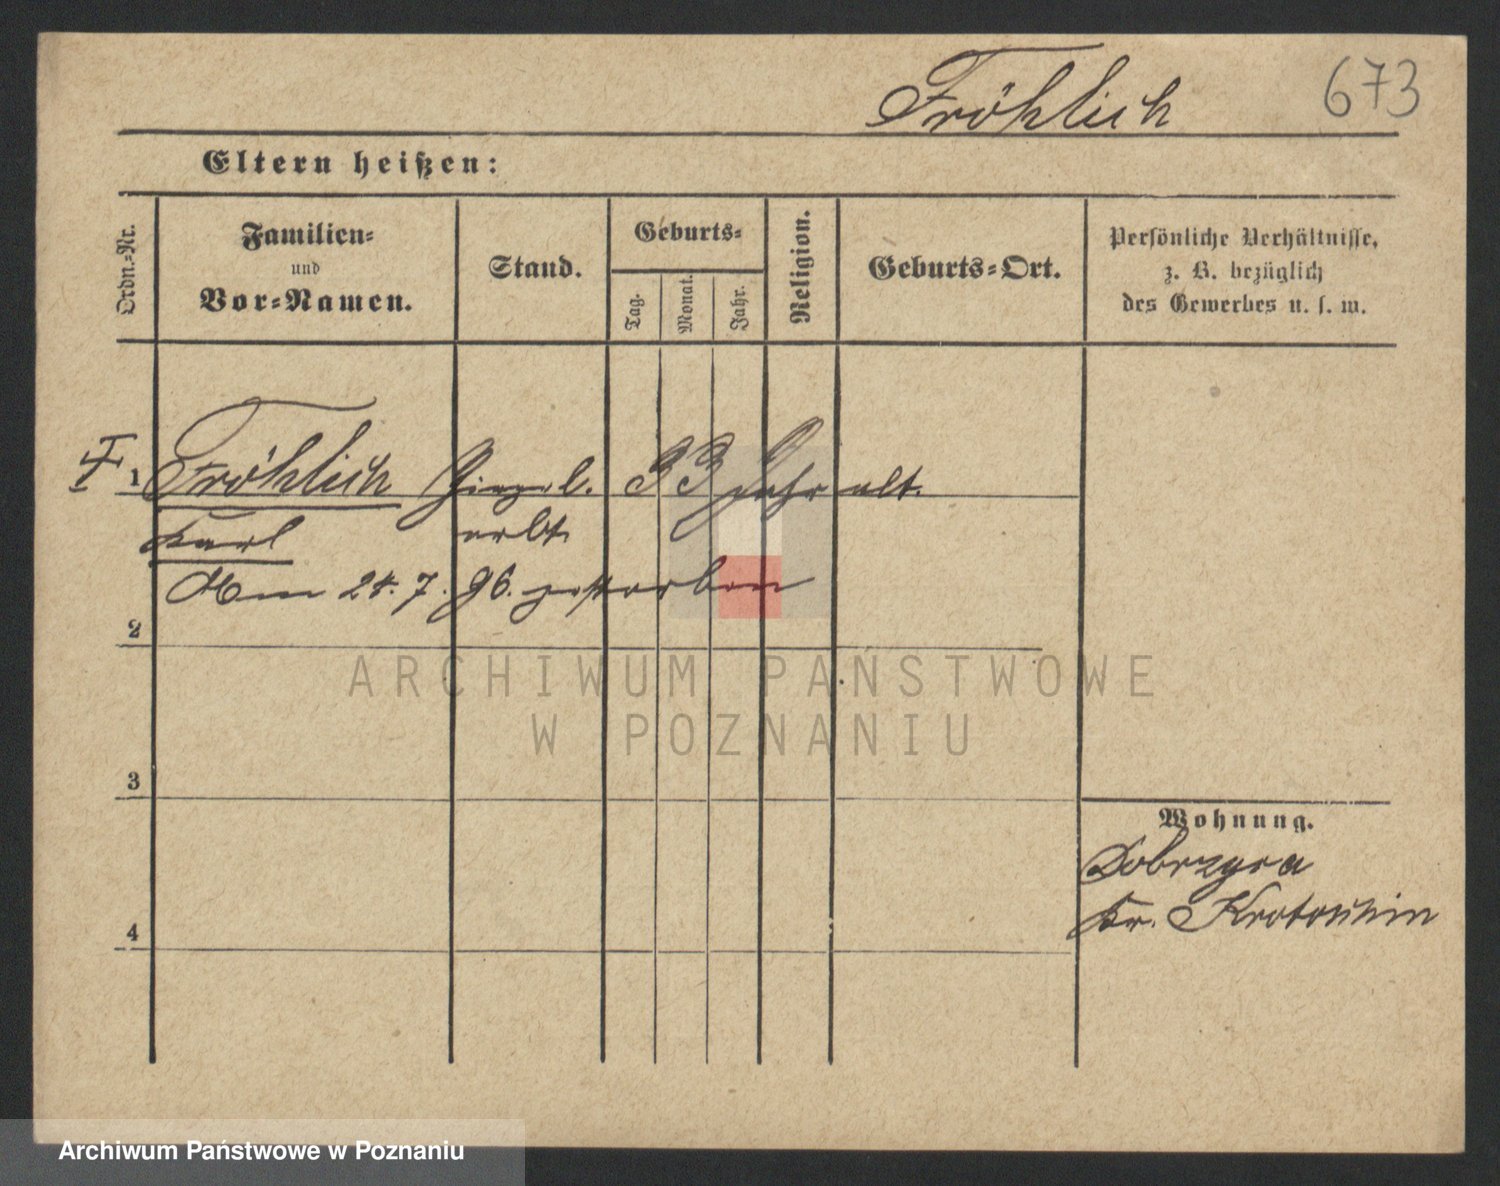 Fröhlich 673
Eltern heißen:
Ordn.-Nr.
Familien-
und
Vor-Namen.
Stand.
Geburts-
Tag.
Monat.
Jahr.
Religion.
Geburts-Ort.
Persönliche Verhältnisse,
z. B. bezüglich
des Gewerbes u. s. w.
1 Fröhlich Ziegel. 33 Jahr alt.
Karl arbt.
Am 24. 7. 96. gestorben
2
3
4
Wohnung.
Dobrzyca
Kr. Krotoschin
ARCHIWUM PAŃSTWOWE
W POZNANIU
Archiwum Państwowe w Poznaniu